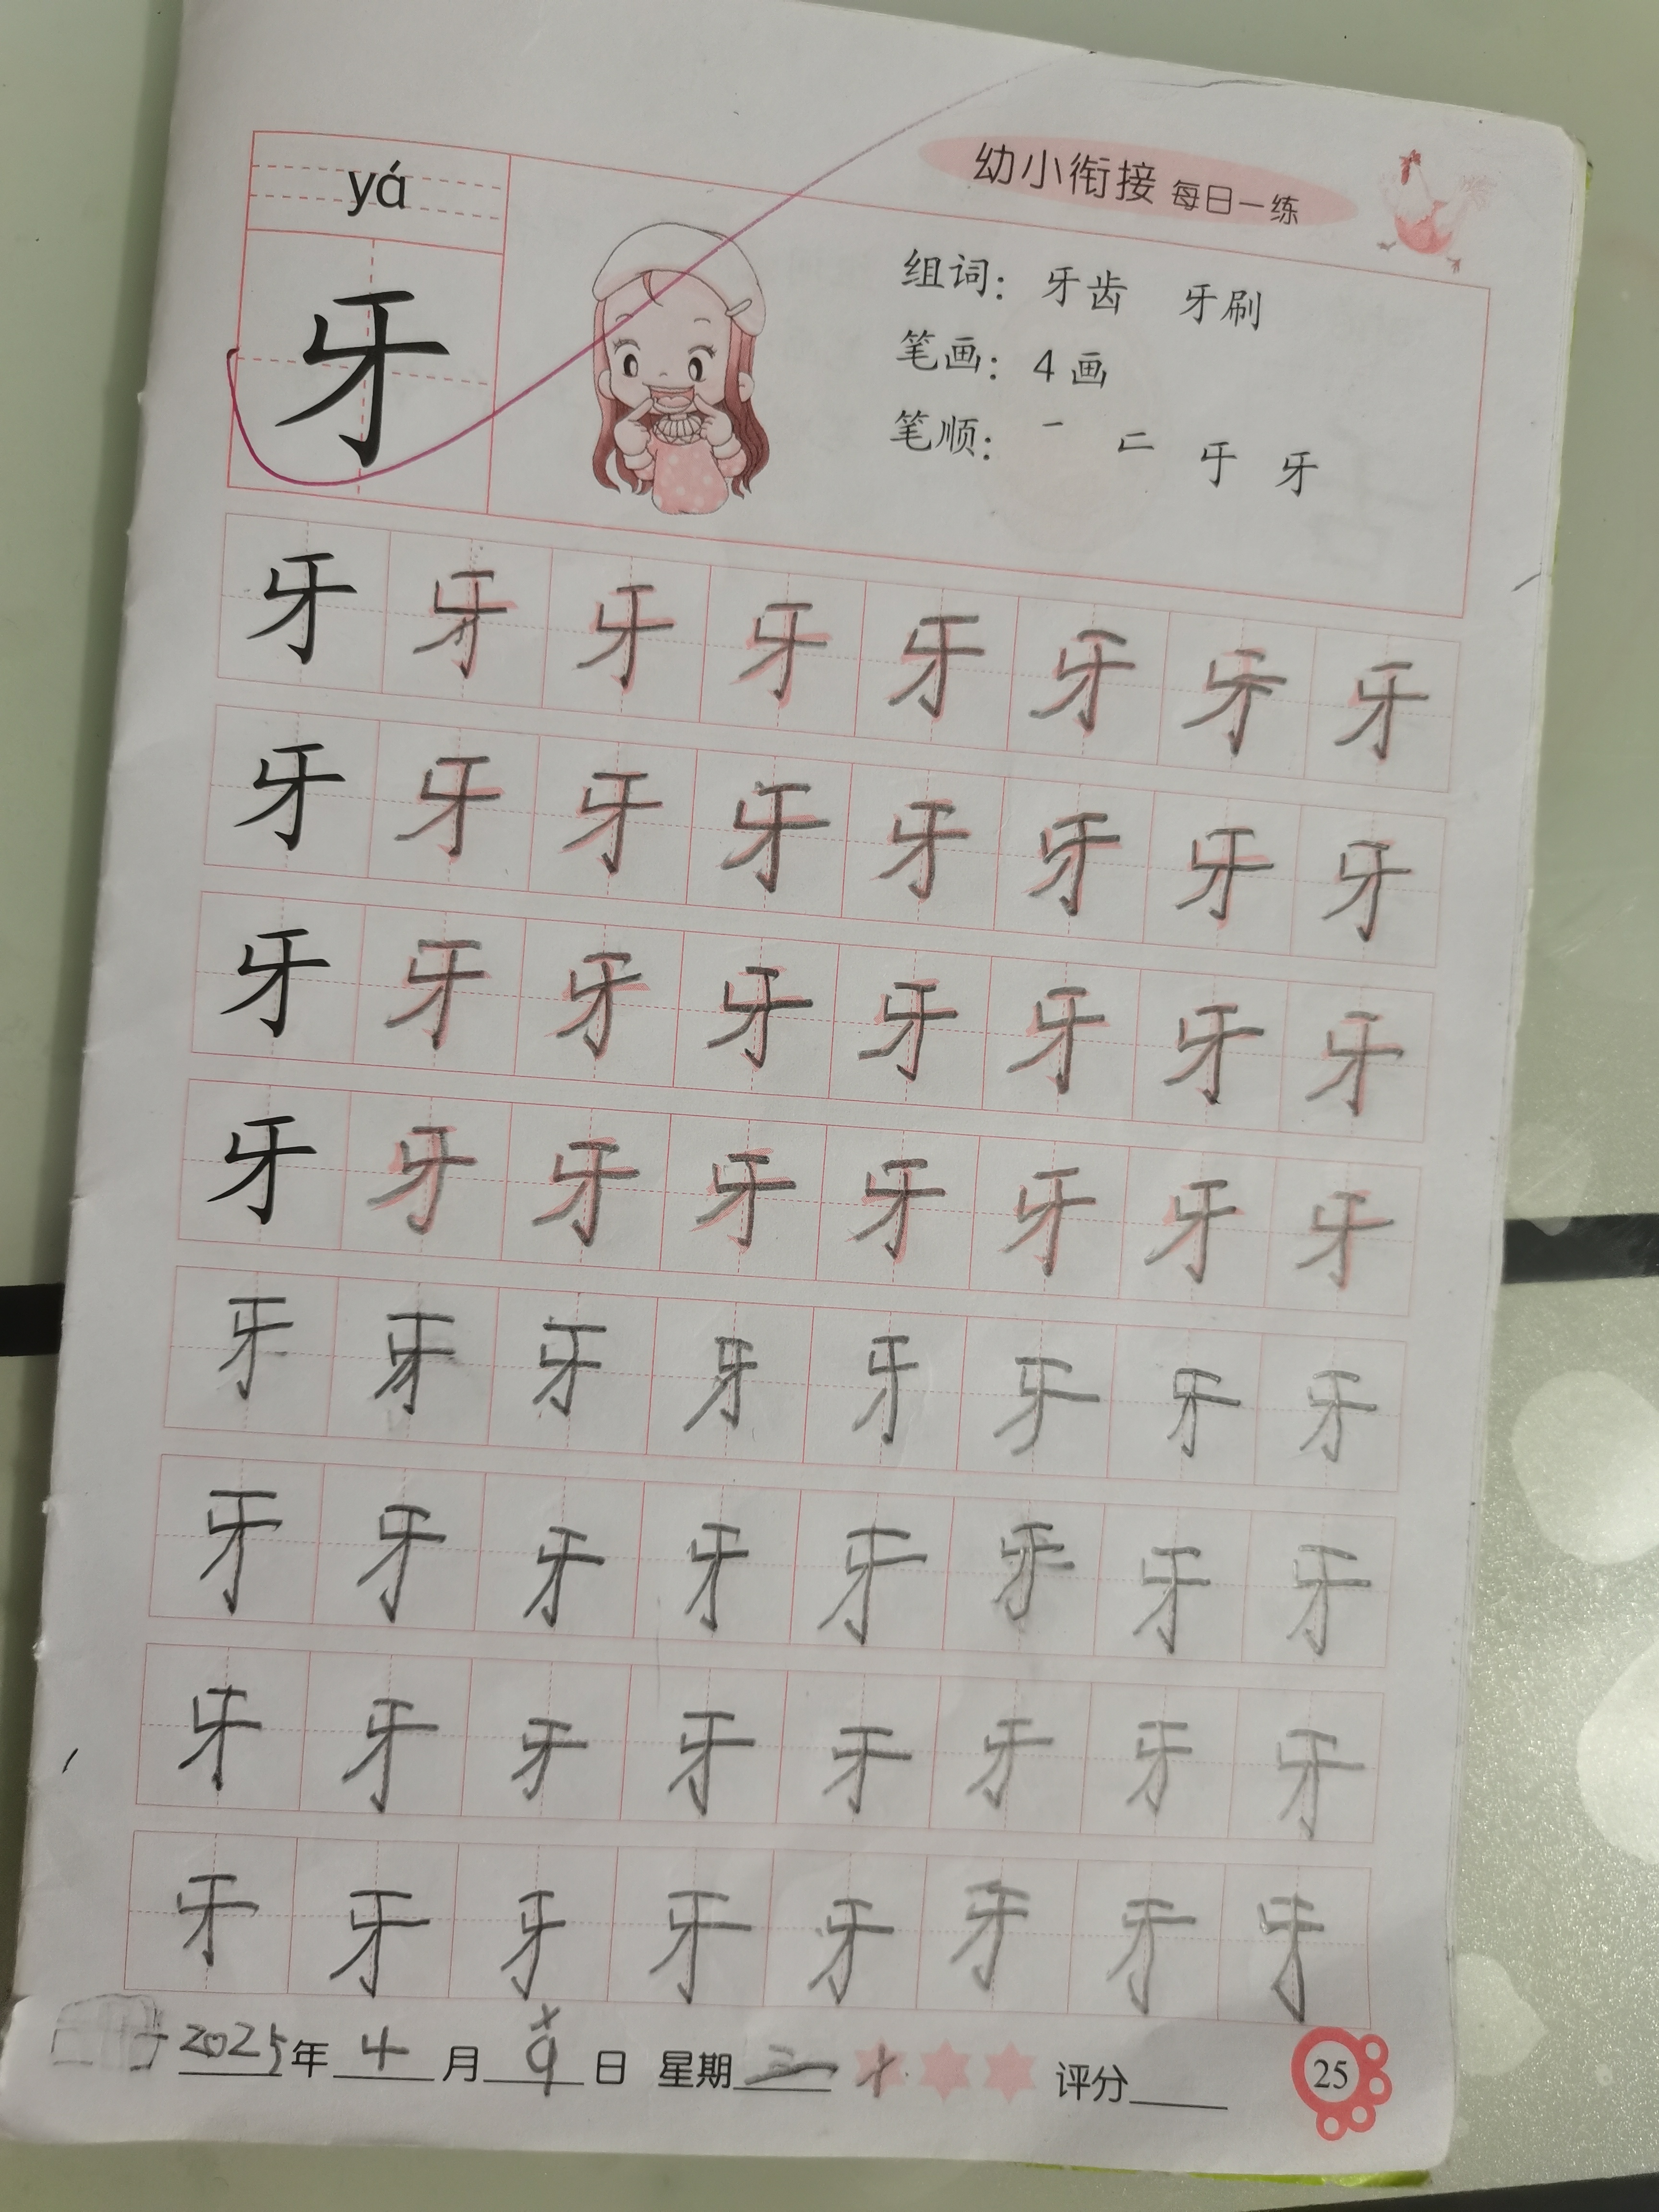 yá
牙
幼小衔接 每日一练
组词: 牙齿 牙刷
笔画: 4画
笔顺: 一 二 于 牙
牙 牙 牙 牙 牙 牙 牙 牙
牙 牙 牙 牙 牙 牙 牙 牙
牙 牙 牙 牙 牙 牙 牙 牙
牙 牙 牙 牙 牙 牙 牙 牙
牙 牙 牙 牙 牙 牙 牙 牙
牙 牙 牙 牙 牙 牙 牙 牙
牙 牙 牙 牙 牙 牙 牙 牙
牙 牙 牙 牙 牙 牙 牙 牙
2025年4月9日 星期 评分 25